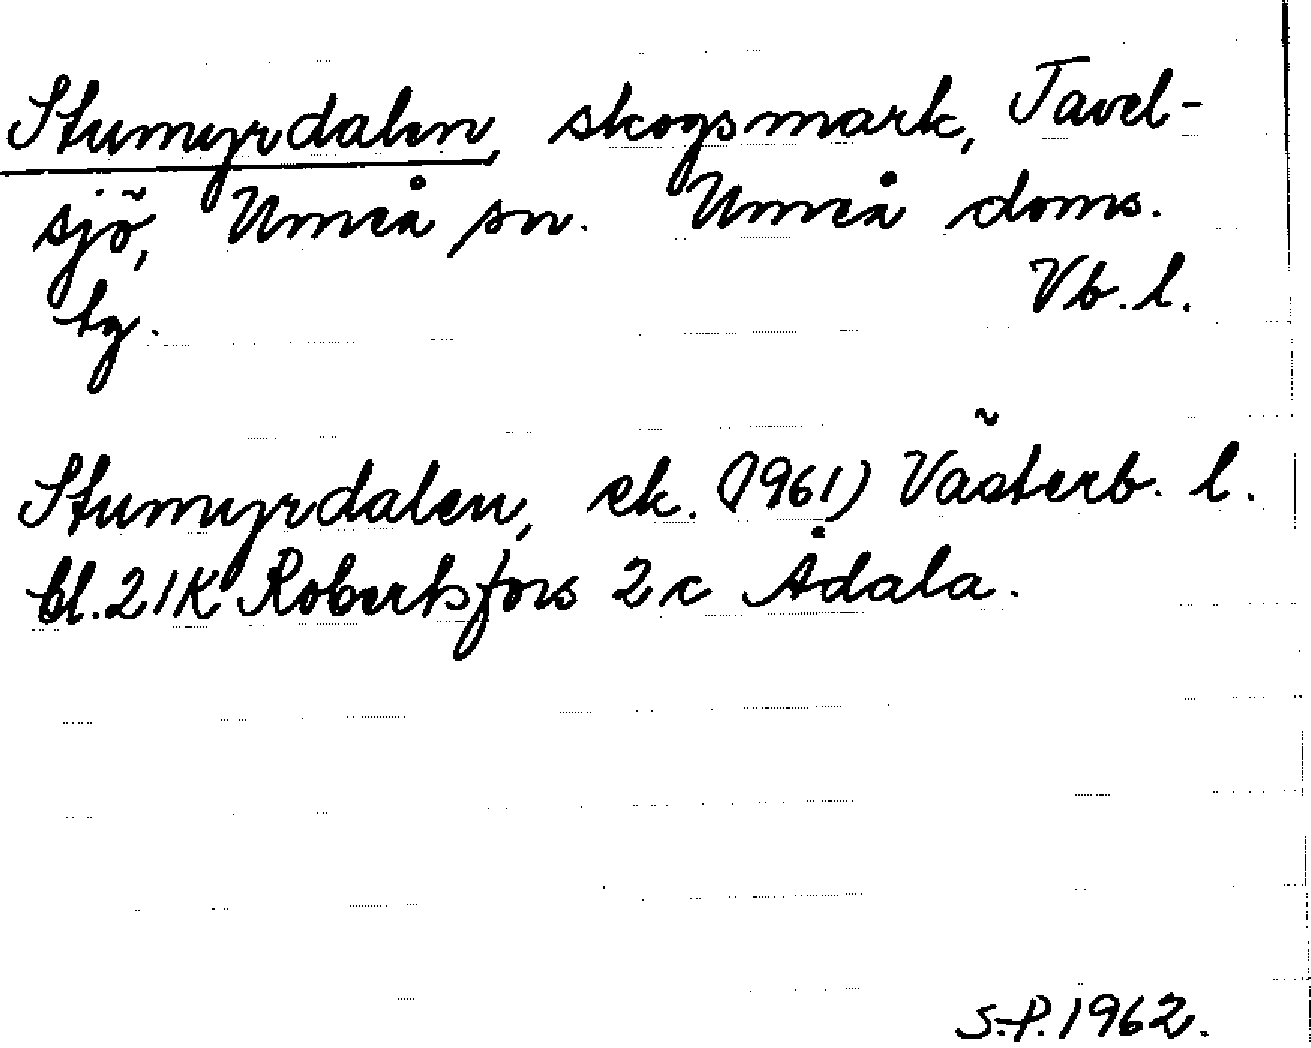 Stumyrdalen, skogsmark, Tavel-
sjö, Umeå sn. Umeå doms.
tg. Vb. l.
Stumyrdalen, ek. (1961) Västerb. l.
bl. 21K Robertsfors 2c Ådala.
S.P. 1962.